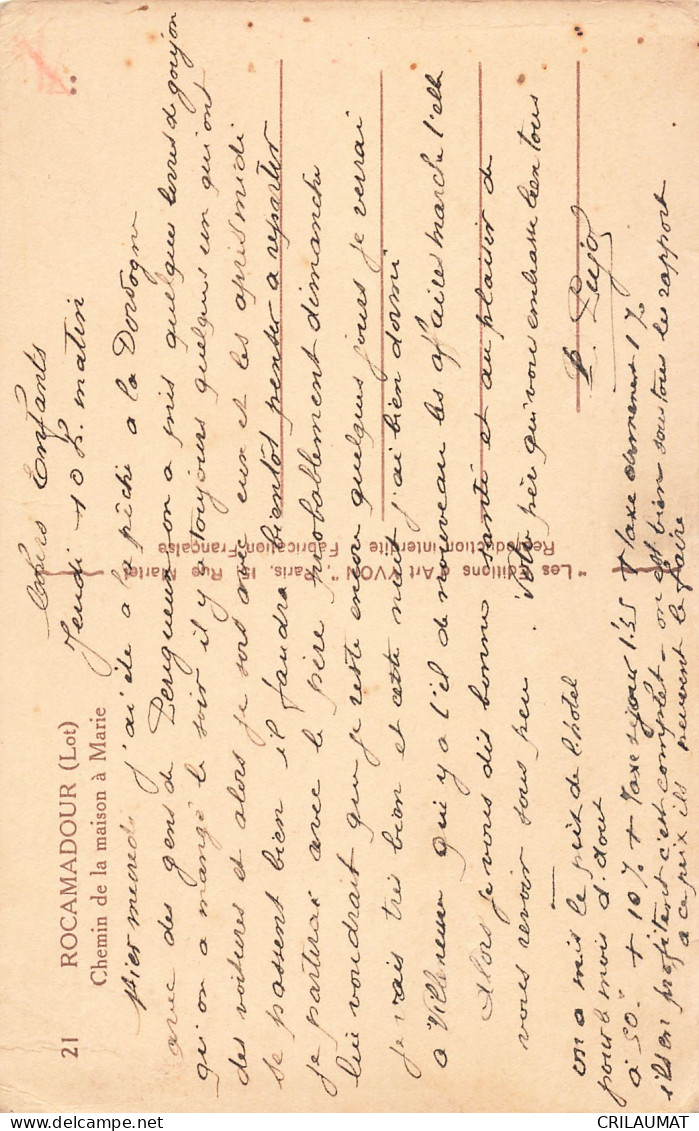 21 ROCAMADOUR (Lot)
Chemin de la maison à Marie
Chers Enfants
Jeudi 10 h. matin
Hier mercredi j'ai été a la pêche a la Dordogne
avec des gens de Perigueux on a pris quelques livres de goujon
qu'on a mangé le soir il y a toujours quelques un qui ont
des voitures et alors je sors avec eux et les apres midi
se passent bien il faudra bientôt penser a repartir
je partirai avec le père probablement dimanche
lui voudrait que je reste encore quelques jours je verrai
je vais très bien et cette nuit j'ai bien dormi
a Villeneuve qui y a t'il de nouveau les affaires marche t'elle
Alors je vous dis bonne santé et au plaisir de
vous revoir sous peu. Votre père qui vous embrasse bien tous
on a mis le prix de l'hotel
pour le mois d. Aout
à 50. + 10 % + taxe sejour 1.35 + taxe 1 %
ils en profitent c'est complet - on est bien sous tous les rapport
a ce prix ils peuvent le faire
"Les Editions d'Art YVON", Paris, 15, Rue Martel
Reproduction interdite Fabrication Française
CRILAUMAT